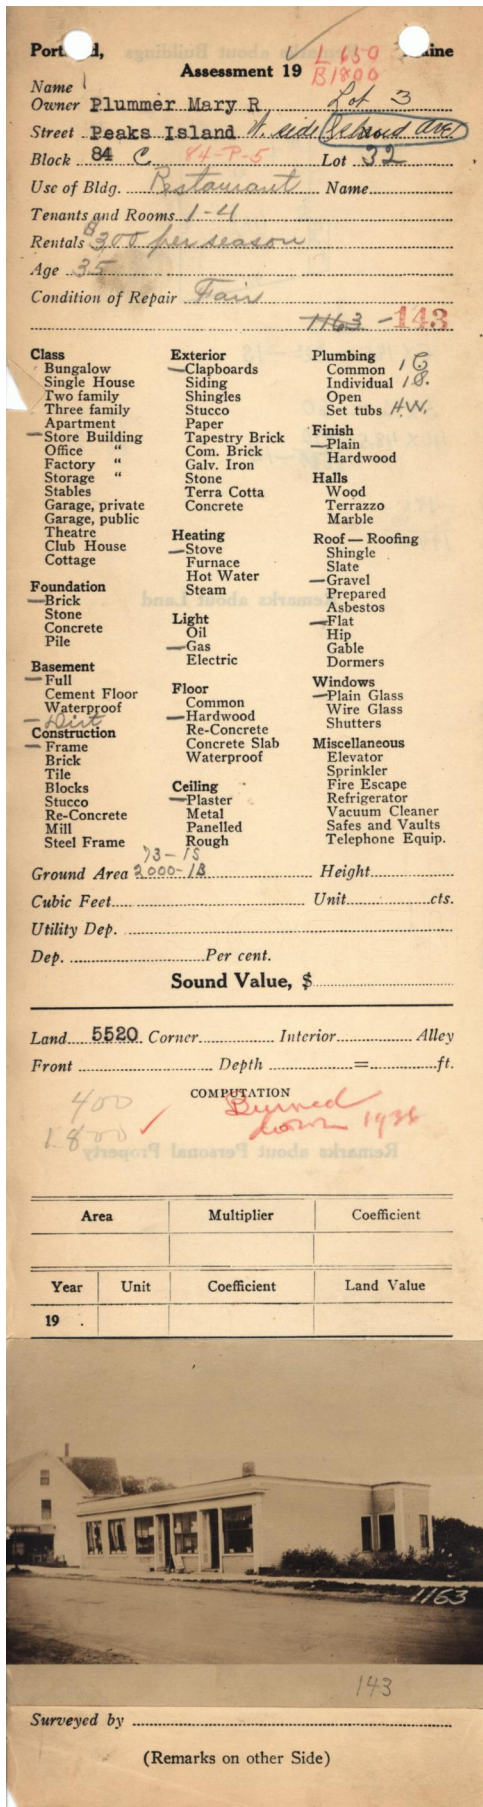 Portland, Maine
L 650
Assessment 19
B1800
Name
Lot 3
Owner Plummer Mary R
Street Peaks Island W. side Island Ave.
Block 84 C 84-P-5 Lot 32
Use of Bldg. Restaurant Name
Tenants and Rooms 1-4
Rentals $300 per season
Age 35
Condition of Repair Fair
1163 - 143
Class
Bungalow
Single House
Two family
Three family
Apartment
Store Building
Office "
Factory "
Storage "
Stables
Garage, private
Garage, public
Theatre
Club House
Cottage
Foundation
Brick
Stone
Concrete
Pile
Basement
Full
Cement Floor
Waterproof
Dirt
Construction
Frame
Brick
Tile
Blocks
Stucco
Re-Concrete
Mill
Steel Frame
Exterior
Clapboards
Siding
Shingles
Stucco
Paper
Tapestry Brick
Com. Brick
Galv. Iron
Stone
Terra Cotta
Concrete
Heating
Stove
Furnace
Hot Water
Steam
Light
Oil
Gas
Electric
Floor
Common
Hardwood
Re-Concrete
Concrete Slab
Waterproof
Ceiling
Plaster
Metal
Panelled
Rough
Plumbing
Common 1 C
Individual 1 S.
Open
Set tubs H.W.
Finish
Plain
Hardwood
Halls
Wood
Terrazzo
Marble
Roof — Roofing
Shingle
Slate
Gravel
Prepared
Asbestos
Flat
Hip
Gable
Dormers
Windows
Plain Glass
Wire Glass
Shutters
Miscellaneous
Elevator
Sprinkler
Fire Escape
Refrigerator
Vacuum Cleaner
Safes and Vaults
Telephone Equip.
73-1S
Ground Area 2000-1B Height
Cubic Feet Unit cts.
Utility Dep.
Dep. Per cent.
Sound Value, $
Land 5520 Corner Interior Alley
Front Depth = ft.
COMPUTATION
400
Burned
1800
down 1936
Area Multiplier Coefficient
Year Unit Coefficient Land Value
19 .
1163
143
Surveyed by
(Remarks on other Side)